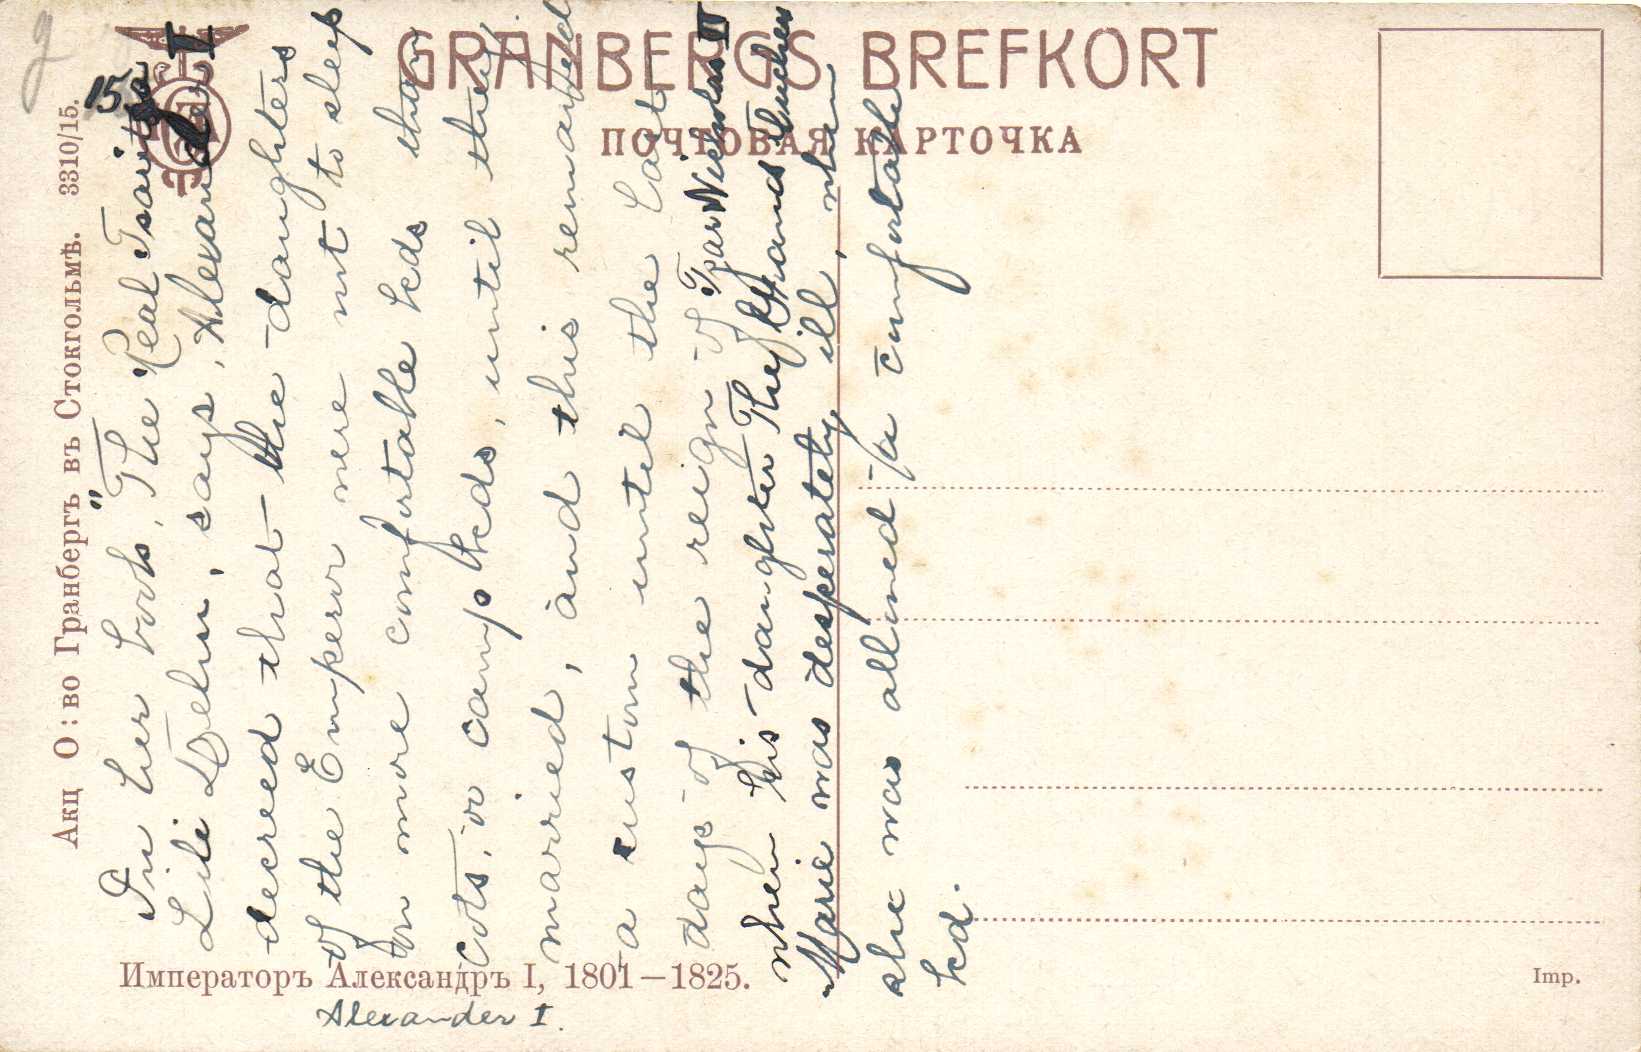 g
GRANBERGS BREFKORT
ПОЧТОВАЯ КАРТОЧКА
Акц О:во Гранбергъ въ Стокгольмѣ. 3310/15.
15.
In her book, "The Real Tsaritsa"
Lili Dehn, says, Alexander I
decreed that the daughters
of the Emperor were not to sleep
on more comfortable beds than
cots, or camp beds, until they
married, and this remained
a custom until the last
days of the reign of Tzar Nicholas II
when his daughter The Grand Duchess
Marie was desperately ill, when
she was allowed a comfortable
bed.
Императоръ Александръ I, 1801—1825.
Alexander I.
Imp.